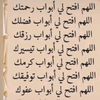 اللهم افتح لي أبواب رحمتك
اللهم افتح لي أبواب فضلك
اللهم افتح لي أبواب رزقك
اللهم افتح لي أبواب تيسيرك
اللهم افتح لي أبواب كرمك
اللهم افتح لي أبواب توفيقك
اللهم افتح لي أبواب عفوك